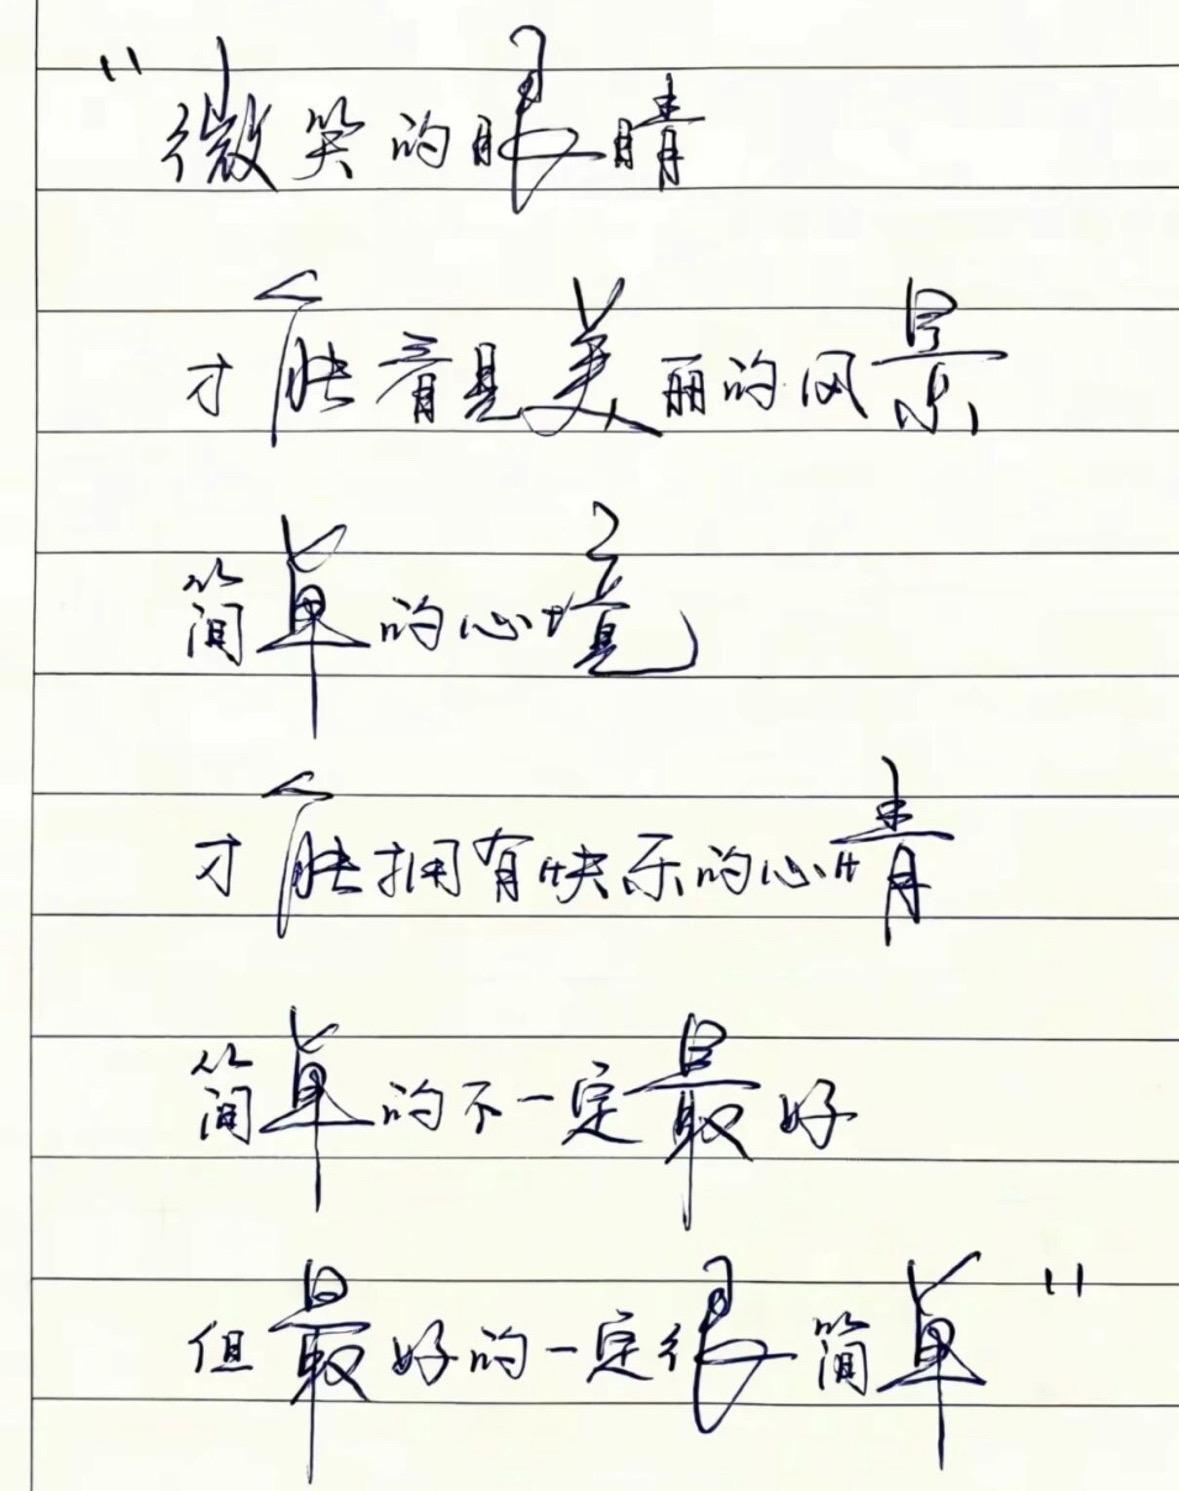 “微笑的眼睛
才能看见美丽的风景
简单的心境
才能拥有快乐的心情
简单的不一定最好
但最好的一定很简单”